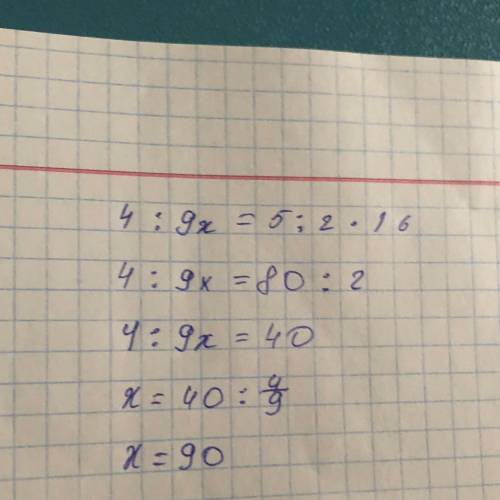 4 : 9x = 5 : 2 · 16
4 : 9x = 80 : 2
4 : 9x = 40
x = 40 : 4/9
x = 90